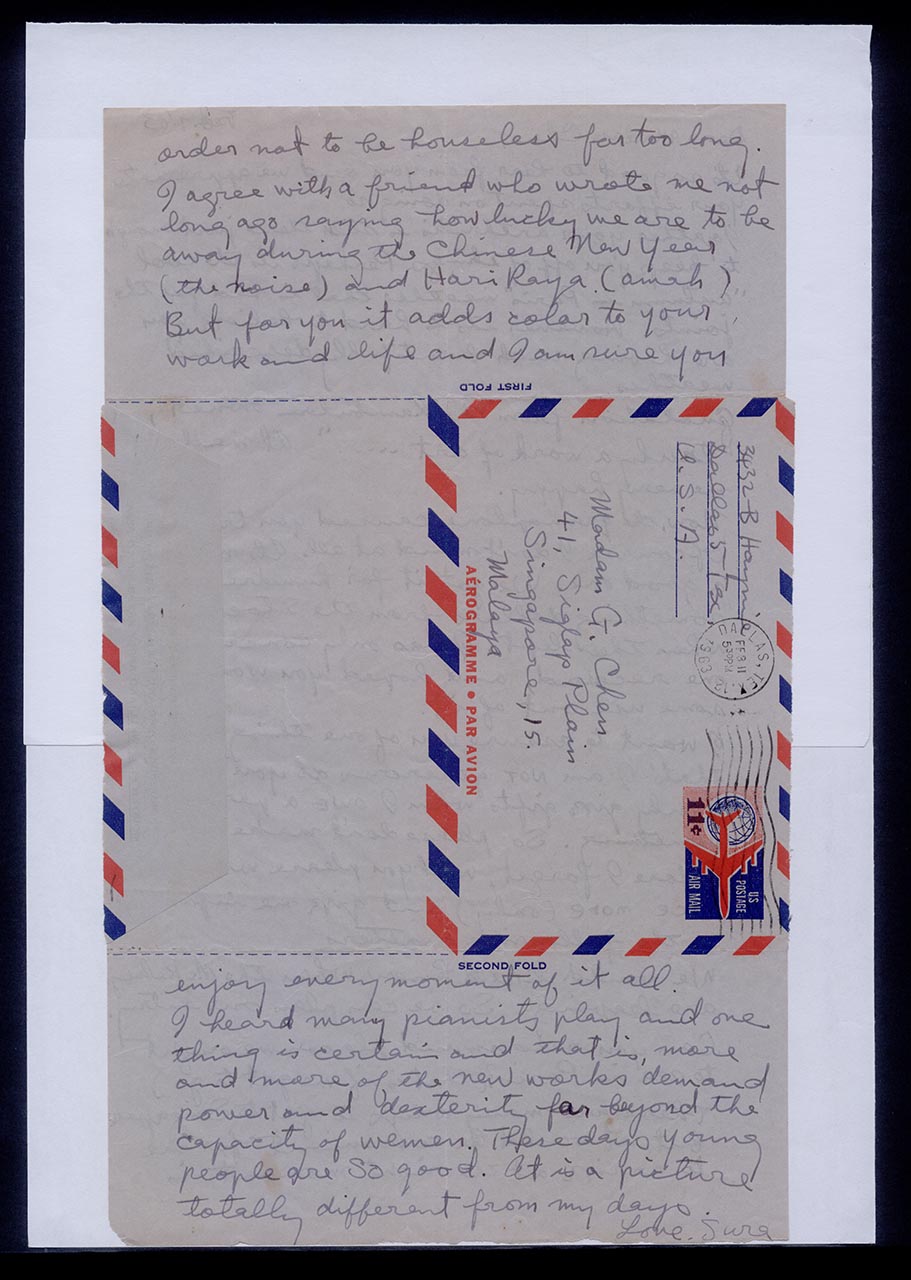 order not to be houseless far too long.
I agree with a friend who wrote me not
long ago saying how lucky we are to be
away during the Chinese New Year
(the noise) and Hari Raya. (amah)
But for you it adds color to your
work and life and I am sure you
FIRST FOLD
3432-B Haynie
Dallas 5 Tex
U.S.A.
DALLAS, TEX
FEB 11
1963
11¢
US
POSTAGE
AIR MAIL
Madam G. Chen
41, Siglap Plain
Singapore, 15.
Malaya
AÉROGRAMME • PAR AVION
SECOND FOLD
enjoy every moment of it all.
I heard many pianists play and one
thing is certain and that is, more
and more of the new works demand
power and dexterity far beyond the
capacity of wemen. These days young
people are so good. It is a picture
totally different from my days.
Love. Sura